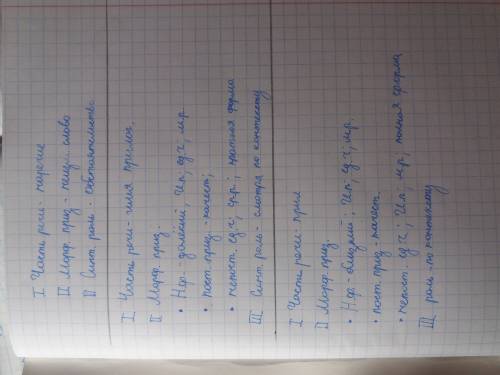 I Часть речи - наречие
II Морф. приз - неизм. слово
II Синт. роль - обстоятельство.
I Часть речи - имя прилаг.
II Морф приз
• Н.ф - далекий; И.п; ед.ч; м.р
• пост. приз. - качест;
• непост. ед.ч; ср.р.; краткая форма
III Синт. роль - смотря по контексту
I Часть речи - прил
II Морф приз.
• Н.ф - близкий; И.п; ед.ч; м.р.
• пост. приз - качест.
• непост. ед.ч; И.п; м.р; полная форма
III роль - по контексту